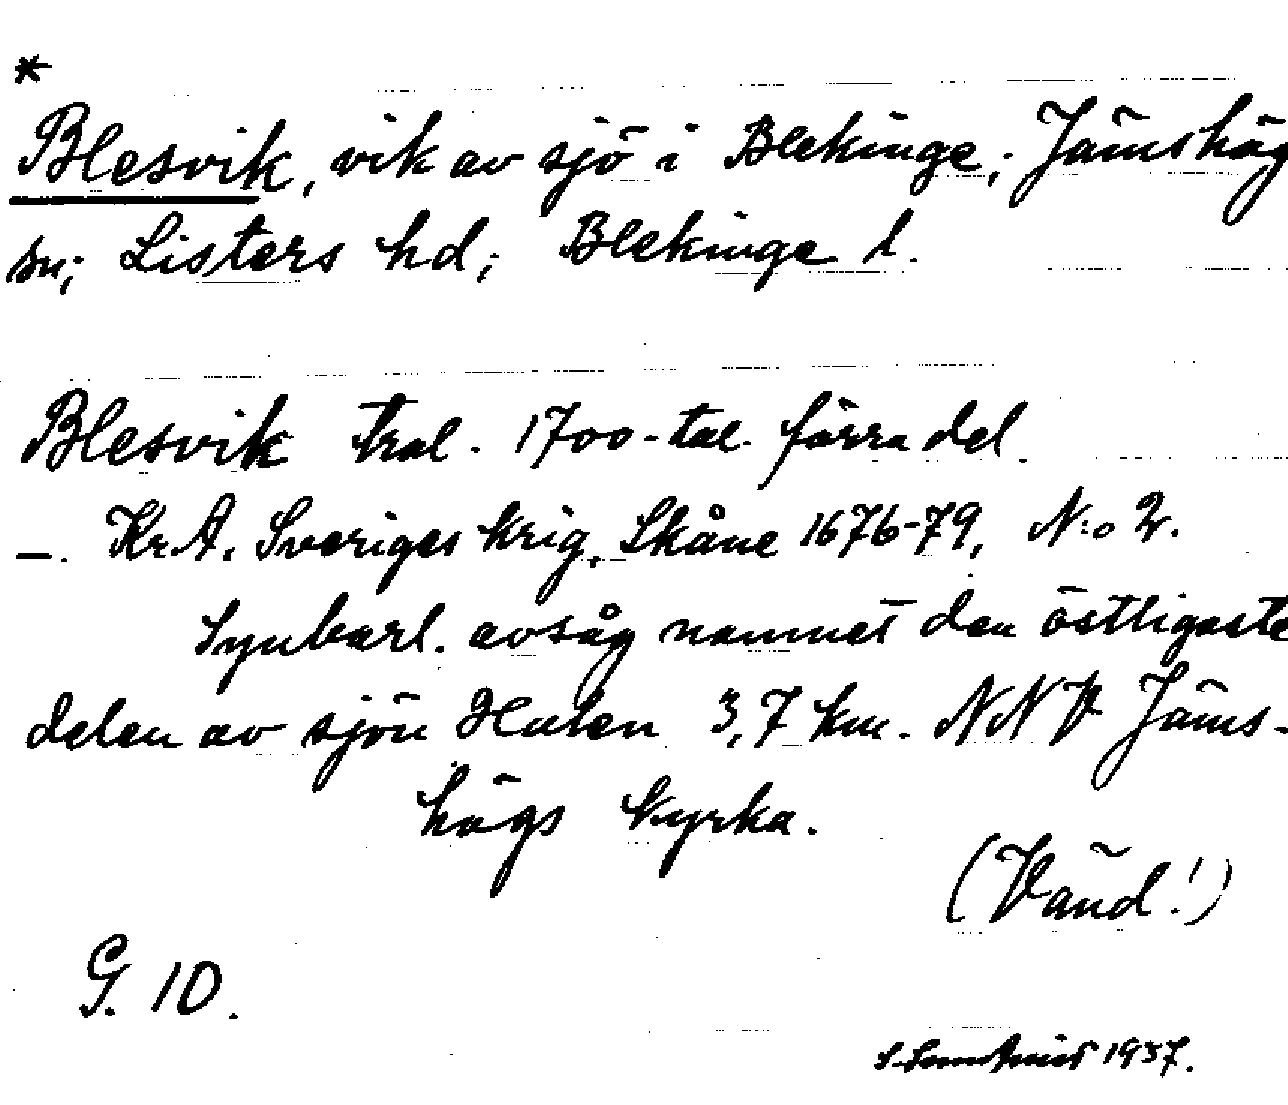 *
Blesvik, vik av sjö i Blekinge; Jämshög
sn; Listers hd; Blekinge l.
Blesvik tral. 1700-tal. förra del.
—. Kr.A. Sveriges krig, Skåne 1676-79, N:o 2.
Synbarl. avsåg namnet den östligaste
delen av sjön Halen 3,7 km. NNV Jäms-
högs kyrka.
(Vänd!)
G. 10.
1937.